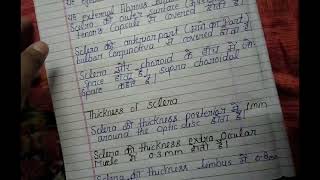 यह external fibrous
Sclera की outer surface
tenon's capsule से covered होती है।
Sclera का anterior part (आगे का part)
bulbar conjunctiva से covered होता है।
Sclera और choroid के बीच में जो
space होता है। supra choroidal
space कहते हैं।
Thickness of Sclera
Sclera की thickness posterior में 1mm
around the optic disc होती है।
Sclera की thickness extra ocular
Muscle में 0.3mm होती है।
Sclera की thickness limbus में 0.8mm